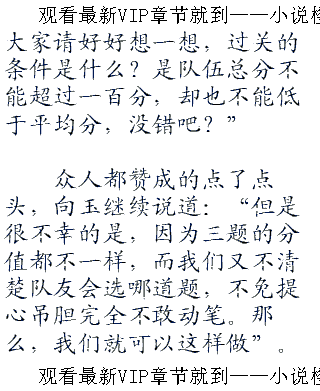 观看最新VIP章节就到——小说检
大家请好好想一想，过关的
条件是什么？是队伍总分不
能超过一百分，却也不能低
于平均分，没错吧？”
众人都赞成的点了点
头，向玉继续说道：“但是
很不幸的是，因为三题的分
值都不一样，而我们又不清
楚队友会选哪道题，不免提
心吊胆完全不敢动笔。那
么，我们就可以这样做”。
观看最新VIP章节就到——小说检